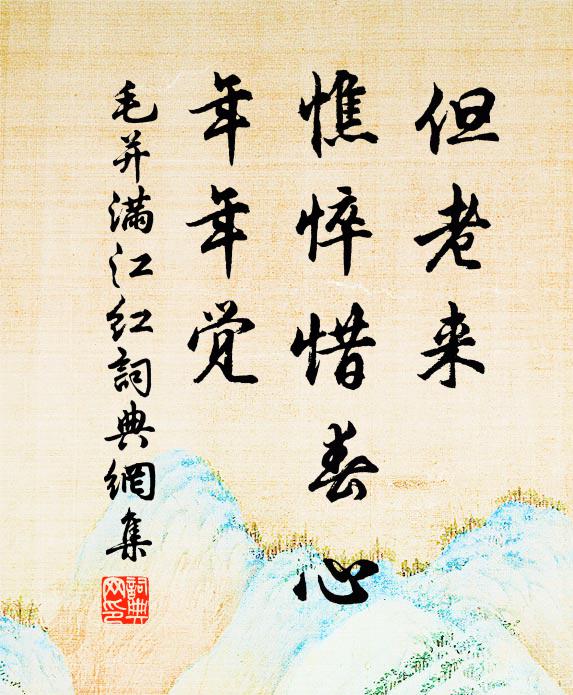 但老来
憔悴惜春心
年年觉
毛并满江红詞典網集
詞典
网印